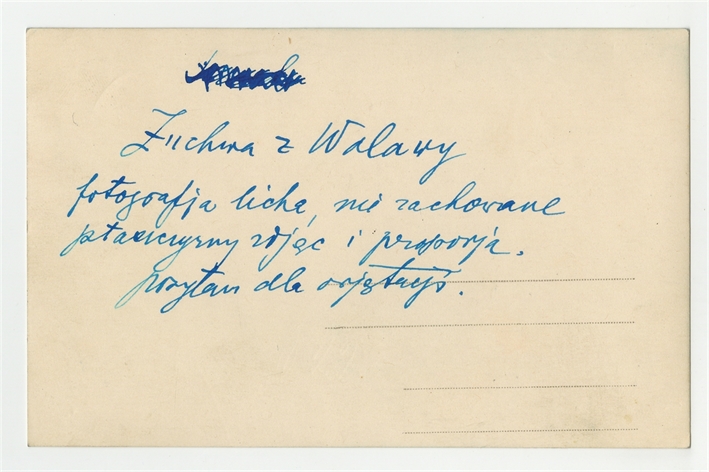 Żuchwa z Walawy
fotografja licha, nie zachowane
płaszczyzny zdjęć i proporcja.
posyłam dla orjętacji.